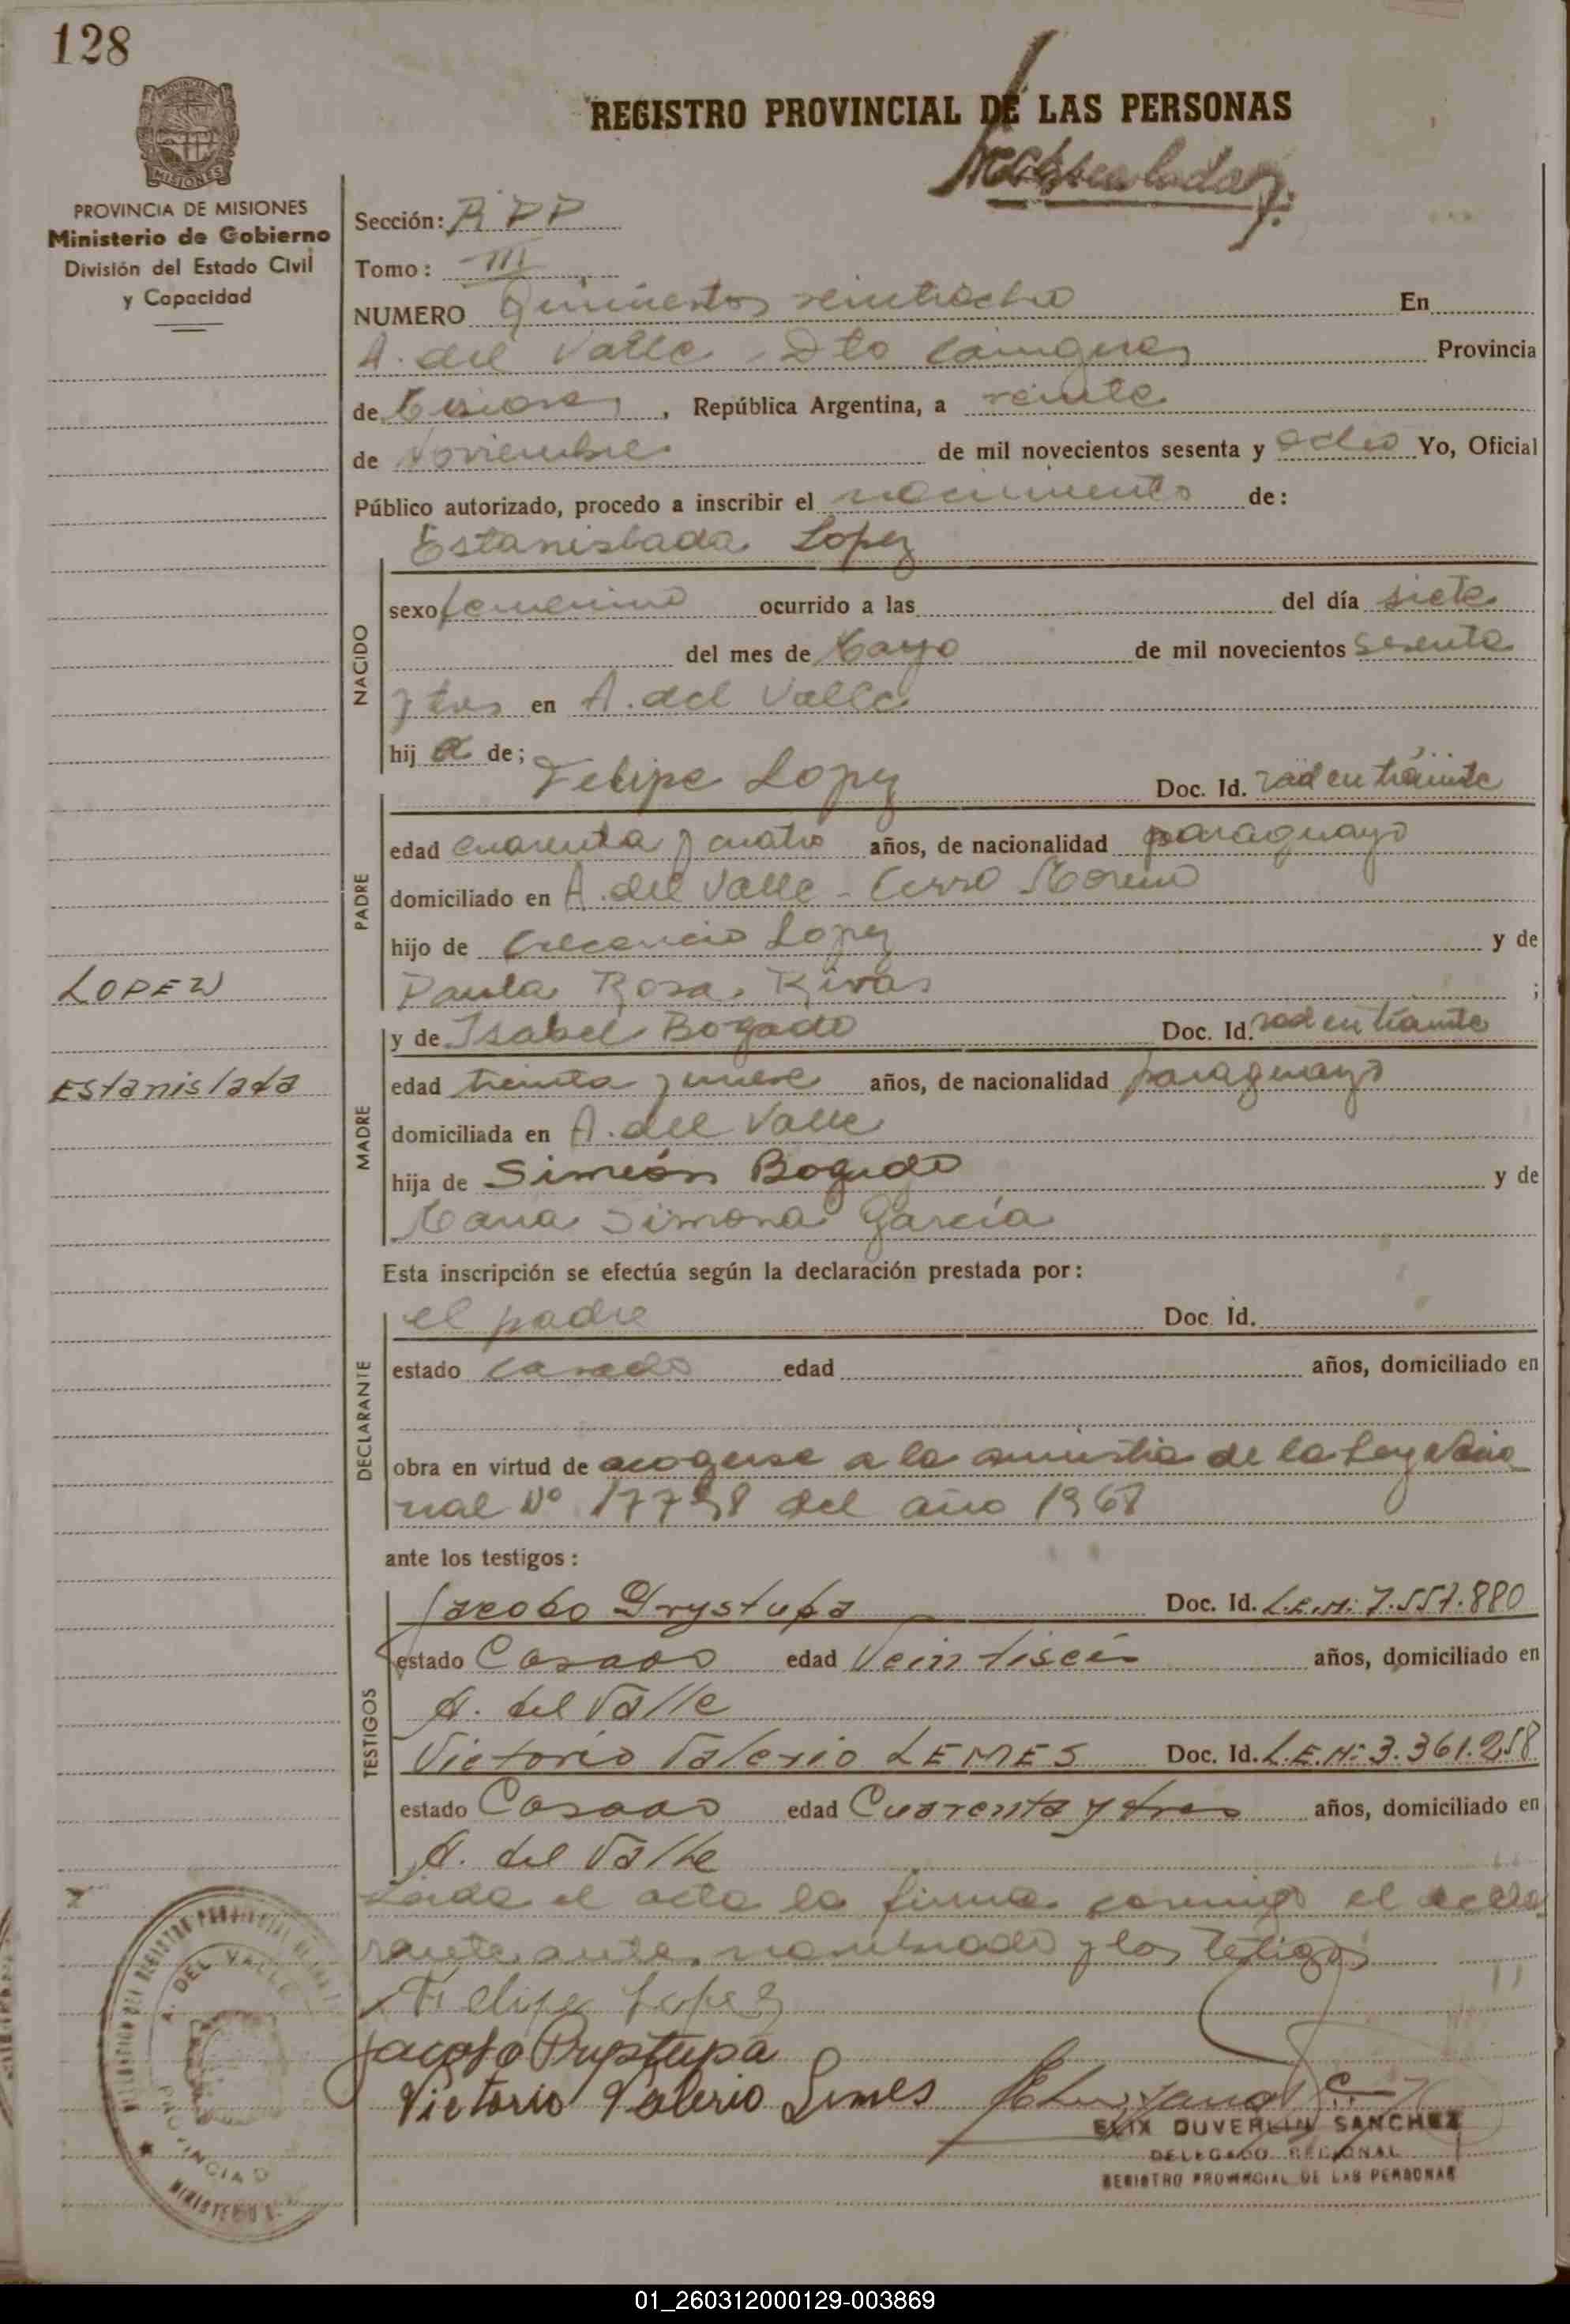 128
PROVINCIA DE MISIONES
MISIONES
PROVINCIA DE MISIONES
Ministerio de Gobierno
División del Estado Civil
y Capacidad
REGISTRO PROVINCIAL DE LAS PERSONAS
Sección: RPP
Tomo: III
NUMERO Quinientos veintiocho En
A. del Valle, Dto Cainguas Provincia
de Misiones, República Argentina, a veinte
de Noviembre de mil novecientos sesenta y ocho Yo, Oficial
Público autorizado, procedo a inscribir el nacimiento de:
Estanislada Lopez
NACIDO
sexo femenino ocurrido a las del día siete
del mes de Mayo de mil novecientos sesenta
y tres en A. del Valle
hij a de;
Felipe Lopez Doc. Id. rad en trámite
PADRE
edad cuarenta y cuatro años, de nacionalidad paraguayo
domiciliado en A. del Valle - Cerro Moreno
hijo de Crecencio Lopez y de
Paula Rosa Rivas ;
LOPEZ
Estanislada
y de Isabel Bogado Doc. Id. rad en trámite
MADRE
edad treinta y nueve años, de nacionalidad paraguayo
domiciliada en A. del Valle
hija de Simeón Bogado y de
Maria Simona García
Esta inscripción se efectúa según la declaración prestada por:
DECLARANTE
el padre Doc. Id.
estado casado edad años, domiciliado en
obra en virtud de acogerse a la amnistia de la Ley Nacio
nal Nº 17798 del año 1968
ante los testigos:
TESTIGOS
Jacobo Prystupa Doc. Id. L.E.N: 7.557.880
estado Casado edad Veintiseis años, domiciliado en
A. del Valle
Victorio Valerio LEMES Doc. Id. L.E.N: 3.361.258
estado Casado edad Cuarenta y tres años, domiciliado en
A. del Valle
Leida el acta la firma conmigo el decla
rante antes nombrado y los testigos
Felipe Lopez
Jacobo Prystupa
Victorio Valerio Limes
ELIX DUVERLIN SANCHEZ
DELEGADO REGIONAL
REGISTRO PROVINCIAL DE LAS PERSONAS
A. DEL VALLE
01_260312000129-003869